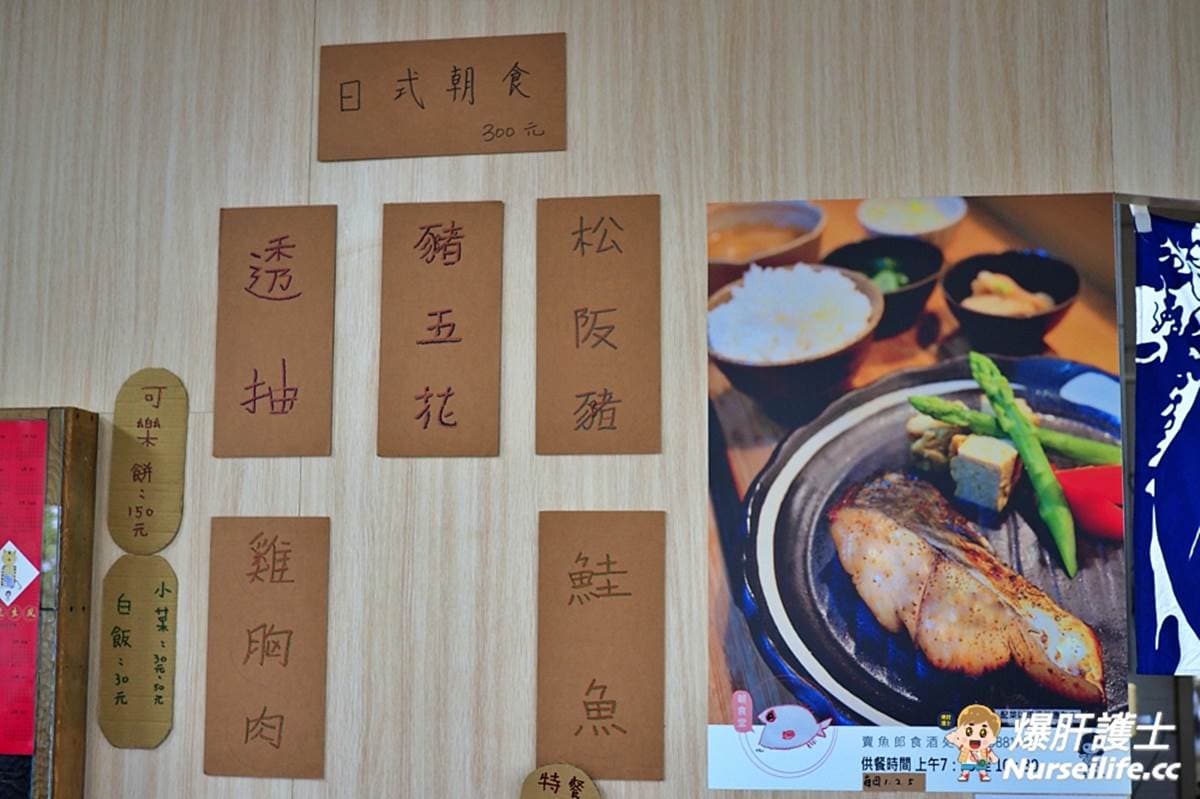 日式朝食
300元
透抽
豬五花
松阪豬
雞胸肉
鮭魚
可樂餅:150元
小菜:30元、50元
白飯:30元
特餐
朝食堂
賣魚郎食酒
供餐時間 上午7:
爆肝護士
Nurseilife.cc